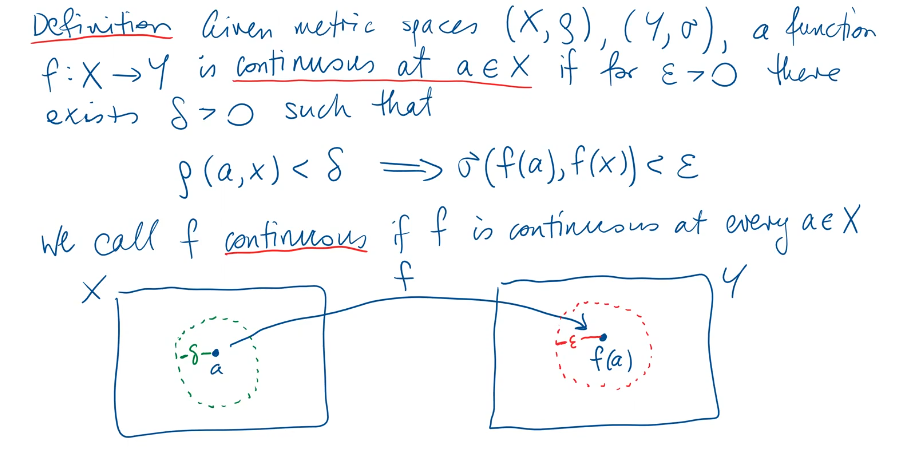 Definition Given metric spaces (X,ρ), (Y,σ), a function
f: X → Y is continuous at a ∈ X if for ε > 0 there
exists δ > 0 such that
ρ(a,x) < δ ⟹ σ(f(a), f(x)) < ε
We call f continuous if f is continuous at every a ∈ X
X f Y
-δ- -ε-
a f(a)